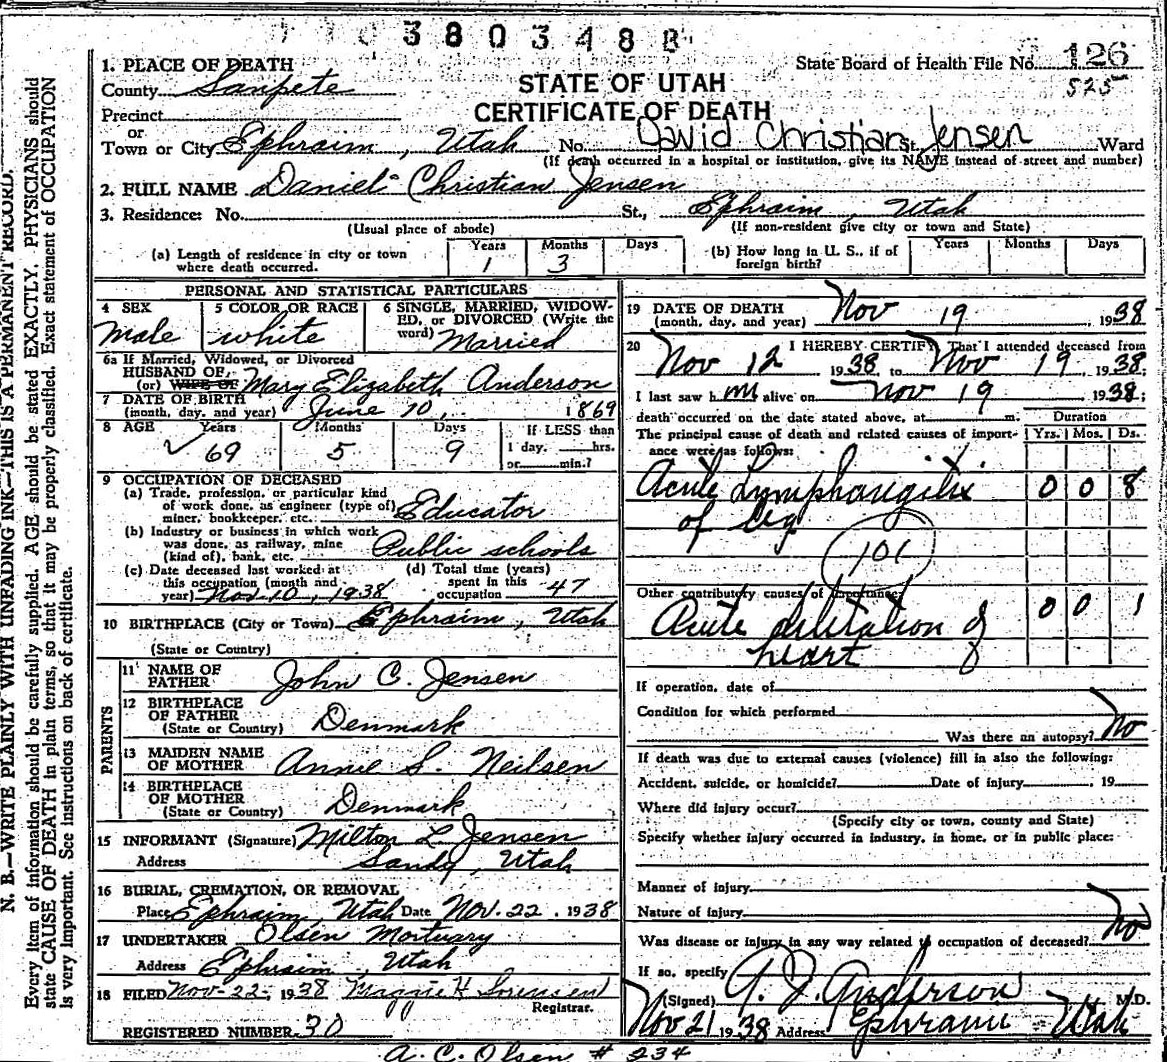 3803488
1. PLACE OF DEATH
State Board of Health File No. 126
525
County Sanpete
STATE OF UTAH
CERTIFICATE OF DEATH
Precinct
or
Town or City Ephraim, Utah No. David Christian Jensen St. Ward
(If death occurred in a hospital or institution, give its NAME instead of street and number)
2. FULL NAME Daniel Christian Jensen
3. Residence: No. St., Ephraim, Utah
(Usual place of abode) (If non-resident give city or town and State)
(a) Length of residence in city or town where death occurred. Years 1 Months 3 Days
(b) How long in U. S., if of foreign birth? Years Months Days
PERSONAL AND STATISTICAL PARTICULARS
4 SEX Male
5 COLOR OR RACE white
6 SINGLE, MARRIED, WIDOWED, or DIVORCED (Write the word) Married
6a If Married, Widowed, or Divorced
HUSBAND OF
(or) WIFE OF Mary Elizabeth Anderson
7 DATE OF BIRTH
(month, day, and year) June 10, 1869
8 AGE Years 69 Months 5 Days 9 If LESS than
1 day, hrs.
or min.?
9 OCCUPATION OF DECEASED
(a) Trade, profession, or particular kind
of work done, as engineer (type of)
miner, bookkeeper, etc. Educator
(b) Industry or business in which work
was done, as railway, mine
(kind of), bank, etc. Public schools
(c) Date deceased last worked at
this occupation (month and
year) Nov 10, 1938
(d) Total time (years)
spent in this
occupation 47
10 BIRTHPLACE (City or Town) Ephraim, Utah
(State or Country)
PARENTS
11 NAME OF
FATHER John C. Jensen
12 BIRTHPLACE
OF FATHER
(State or Country) Denmark
13 MAIDEN NAME
OF MOTHER Annie S. Neilsen
14 BIRTHPLACE
OF MOTHER
(State or Country) Denmark
15 INFORMANT (Signature) Milton L. Jensen
Address Sandy, Utah
16 BURIAL, CREMATION, OR REMOVAL
Place Ephraim, Utah Date Nov. 22, 1938
17 UNDERTAKER Olsen Mortuary
Address Ephraim, Utah
18 FILED Nov-22-, 1938 Maggie H Sorensen
Registrar.
REGISTERED NUMBER 30
A. C. Olsen # 234
19 DATE OF DEATH
(month, day, and year) Nov 19, 1938
20 I HEREBY CERTIFY That I attended deceased from
Nov 12 1938 to Nov 19, 1938;
I last saw h im alive on Nov 19 1938;
death occurred on the date stated above, at m. Duration
The principal cause of death and related causes of importance were as follows: Yrs. Mos. Ds.
Acute Lymphangitis 0 0 8
of leg
101
Other contributory causes of importance:
Acute dilitation of 0 0 1
heart
If operation, date of
Condition for which performed
Was there an autopsy? No
If death was due to external causes (violence) fill in also the following:
Accident, suicide, or homicide? Date of injury , 19
Where did injury occur?
(Specify city or town, county and State)
Specify whether injury occurred in industry, in home, or in public place:
Manner of injury
Nature of injury
Was disease or injury in any way related to occupation of deceased? No
If so, specify
(Signed) A. J. Anderson M.D.
Nov 21 1938 Address Ephraim - Utah
N. B.—WRITE PLAINLY WITH UNFADING INK—THIS IS A PERMANENT RECORD.
Every item of information should be carefully supplied. AGE should be stated EXACTLY. PHYSICIANS should
state CAUSE OF DEATH in plain terms, so that it may be properly classified. Exact statement of OCCUPATION
is very important. See instructions on back of certificate.